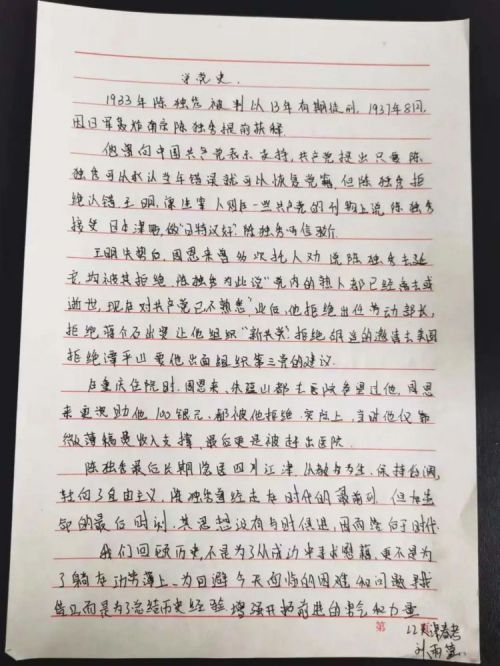 学党史.
1933年陈独秀被判以13年有期徒刑. 1937年8月,
因日军轰炸南京陈独秀提前获释.
他曾向中国共产党表示支持,共产党提出只要陈
独秀可公开承认当年错误就可以恢复党籍,但陈独秀拒
绝认错.王明,康生等人则在一些共产党的刊物上说陈独秀
接受日本津贴,做"日特汉奸"陈独秀
王明失势后,周恩来曾多次托人劝说陈独秀去延
安,均被其拒绝.陈独秀为此说"党内的熟人都已经离去或
逝世,现在对共产党已不熟悉"此后,他拒绝出任劳动部长,
拒绝蒋介石出资让他组织"新共党".拒绝胡适的邀请去美国
拒绝谭平山要他出面组织第三党的建议.
在重庆住院时.周恩来、朱蕴山都去医院看望过他,周恩
来更资助他100银元.都被他拒绝.实际上,当时他仅靠
微薄稿费收入支撑.最后更是被赶出医院
陈独秀最后长期隐居四川江津.从教书为生.保持低调,
转向了自由主义,陈独秀曾经走在时代的最前列.但在生
命的最后时刻.其思想没有与时俱进,因而落后于时代.
我们回顾历史,不是为了从成功中寻求慰藉.更不是为
了躺在功劳簿上、为回避今天面临的困难和问题寻找
借口,而是为了总结历史经验.增强开拓前进的勇气和力量
第 页